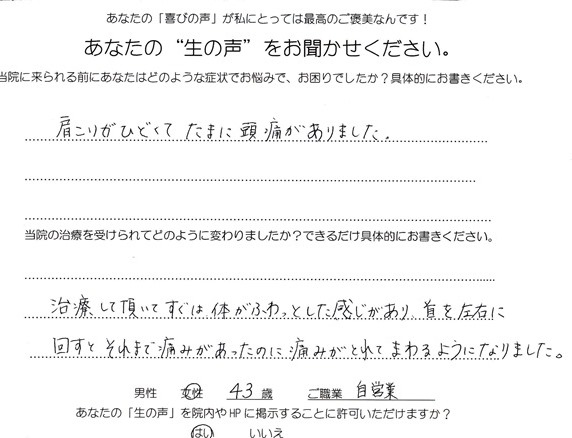 あなたの「喜びの声」が私にとっては最高のご褒美なんです！
あなたの“生の声”をお聞かせください。
当院に来られる前にあなたはどのような症状でお悩みで、お困りでしたか？具体的にお書きください。
肩こりがひどくて たまに頭痛がありました。
当院の治療を受けられてどのように変わりましたか？できるだけ具体的にお書きください。
治療して頂いてすぐは体がふわっとした感じがあり、首を左右に
回すと それまで痛みがあったのに痛みがとれてまわるようになりました。
男性 女性 43 歳 ご職業 自営業
あなたの「生の声」を院内やHPに掲示することに許可いただけますか？
はい いいえ